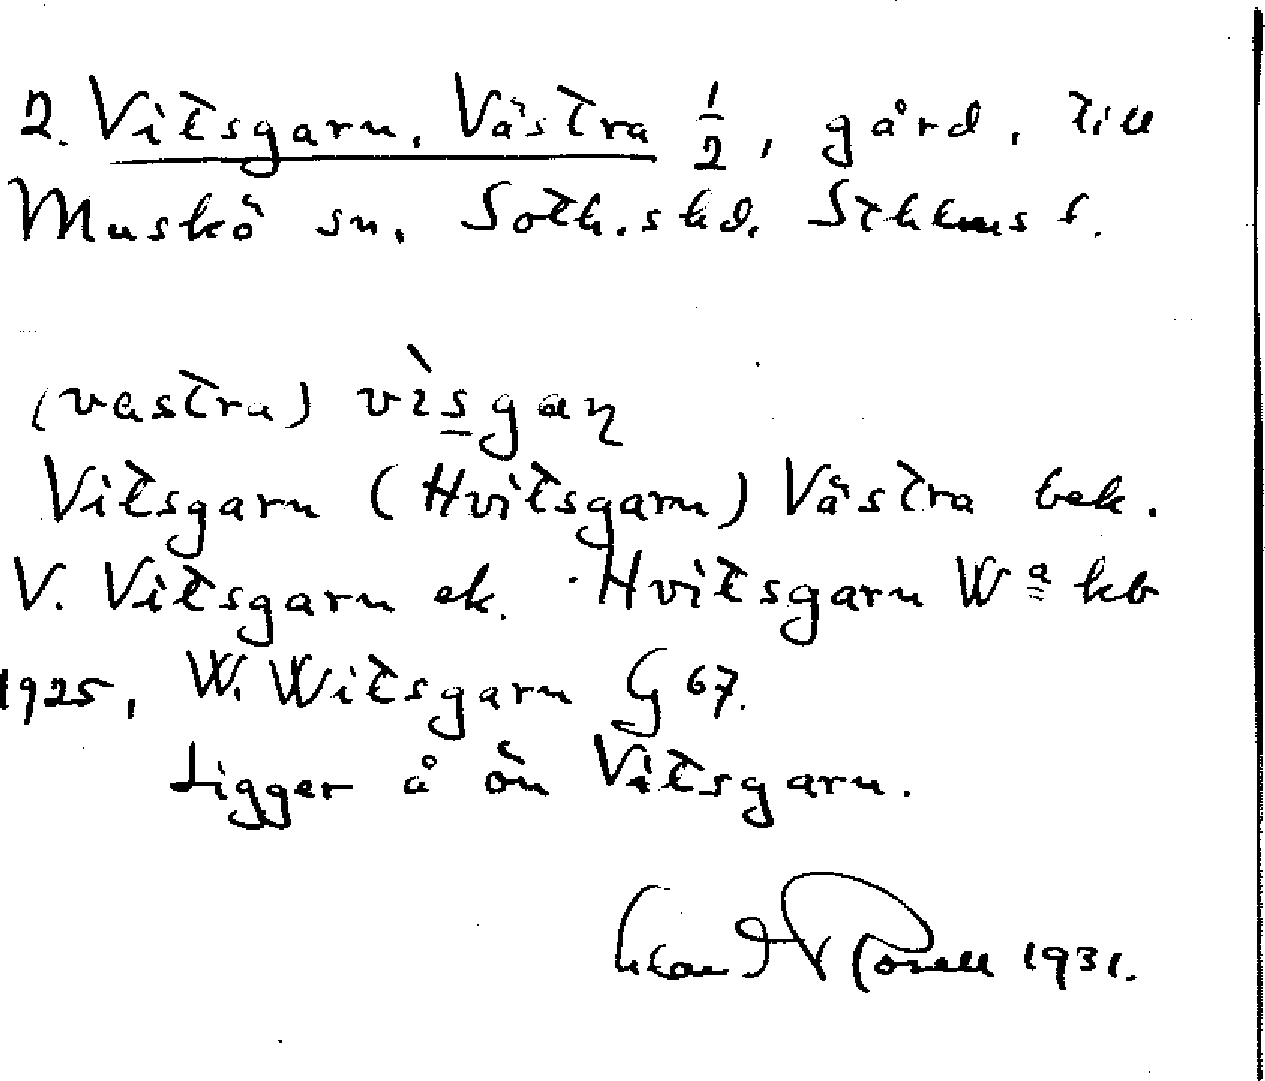 2. Vitsgarn, Västra 1/2, gård, till
Muskö sn. Soth.s hd. Sthlms l.
(vastra) vìsgaɳ
Vitsgarn (Hvitsgarn) Västra bek.
V. Vitsgarn ek. Hvitsgarn Wa kb
1925, W. Witsgarn G 67.
Ligger å ön Vitsgarn.
1931.